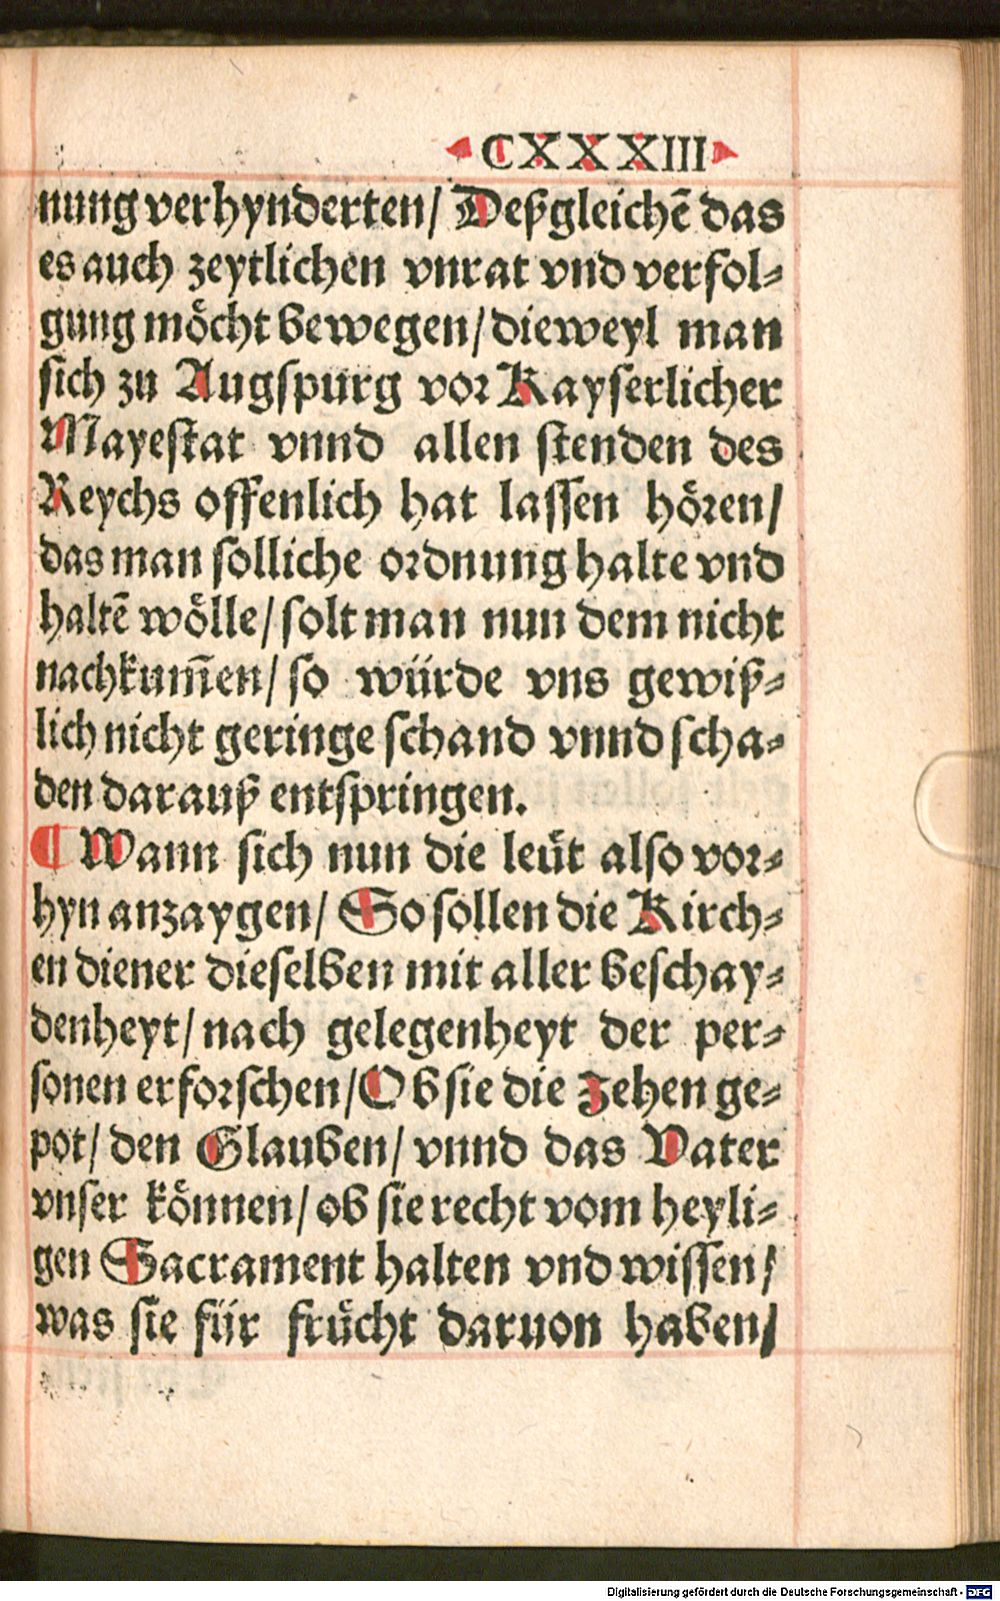 CXXXIII
nung verhynderten/ Deßgleichē das
es auch zeytlichen vnrat vnd verfol⸗
gung möcht bewegen/ dieweyl man
sich zu Augspurg vor Kayserlicher
Mayestat vnnd allen stenden des
Reychs offenlich hat lassen hören/
das man solliche ordnung halte vnd
haltē wölle/ solt man nun dem nicht
nachkum̄en/ so würde vns gewiß⸗
lich nicht geringe schand vnnd scha⸗
den darauß entspringen.
¶ Wann sich nun die leüt also vor⸗
hyn anzaygen/ So sollen die Kirch⸗
en diener dieselben mit aller beschay⸗
denheyt/ nach gelegenheyt der per⸗
sonen erforschen/ Ob sie die zehen ge⸗
pot/ den Glauben/ vnnd das Vater
vnser können/ ob sie recht vom heyli⸗
gen Sacrament halten vnd wissen/
was sie für frücht daruon haben/
Digitalisierung gefördert durch die Deutsche Forschungsgemeinschaft - DFG